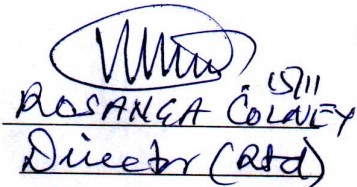 15/11
ROSANGA COLNEY
Director (Rtd)